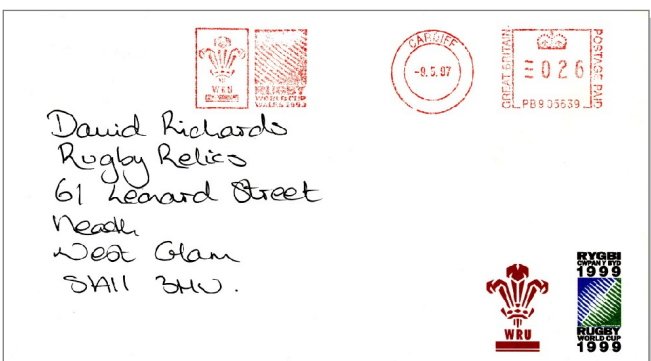 WRU
RUGBY
WORLD CUP
WALES 1999
CARDIFF
-9.5.97
GREAT BRITAIN
026
POSTAGE PAID
PB905639
David Richards
Rugby Relics
61 Leonard Street
Neath
West Glam
SA11 3HW.
WRU
RYGBI
CWPAN Y BYD
1999
RUGBY
WORLD CUP
1999